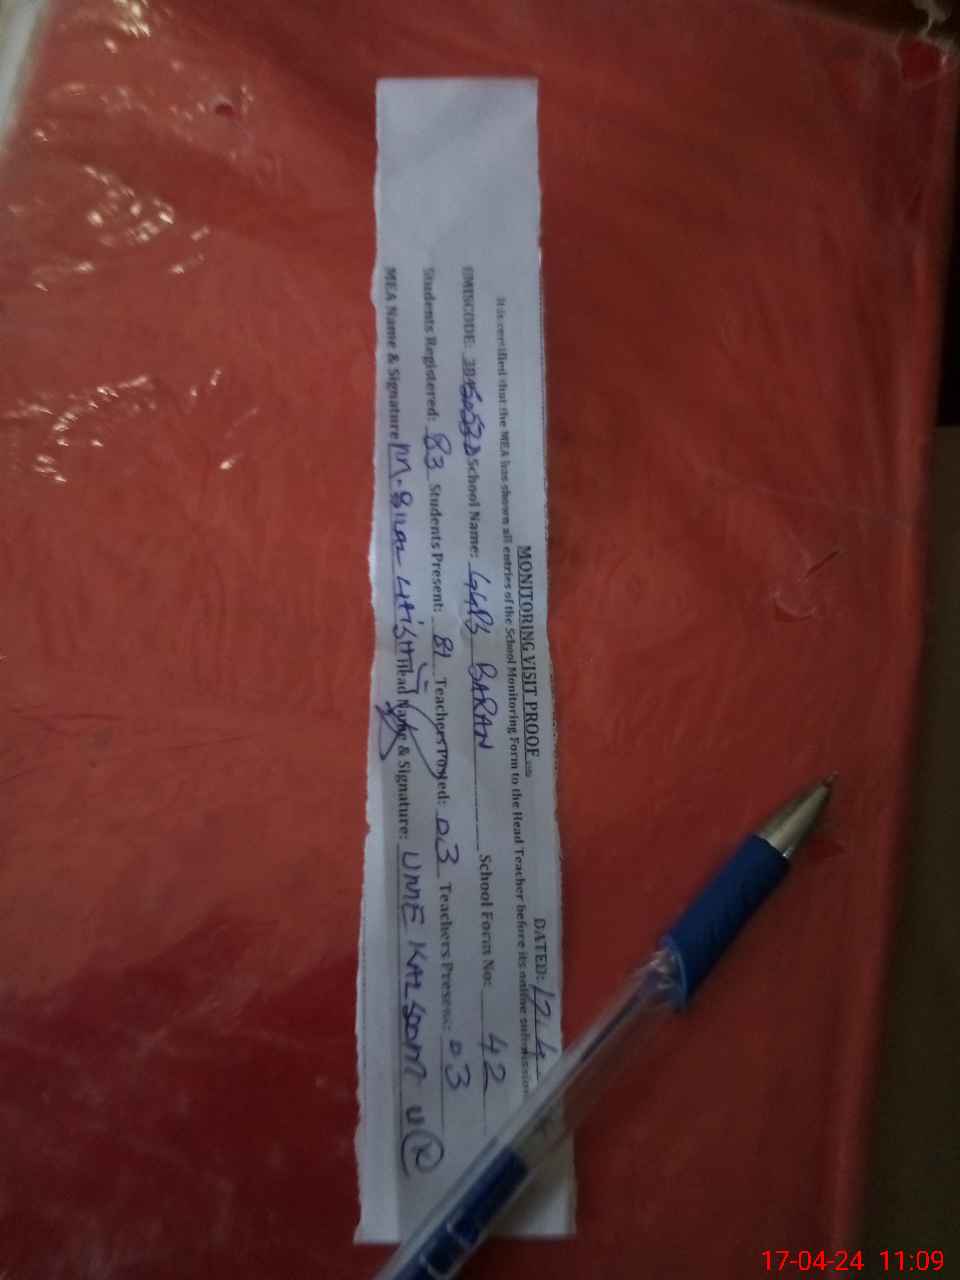 MONITORING VISIT PROOF
DATED: 17-4
It is certified that the MEA has shown all entries of the School Monitoring Form to the Head Teacher before its online submission
EMISCODE: School Name: GGPS BARAN School Form No: 42
Students Registered: 83 Students Present: 81 Teachers Posted: 03 Teachers Present: 03
MEA Name & Signature M. BILAL Head Name & Signature: UMME KALSOOM
17-04-24 11:09